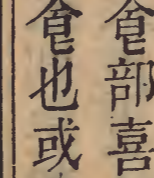 食部喜
食也或